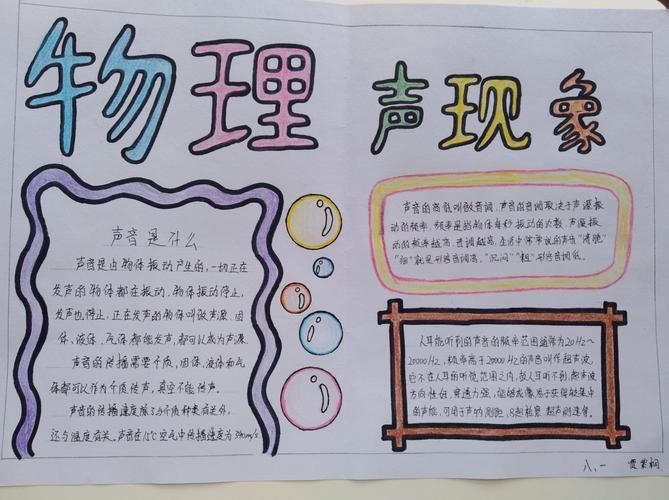 物理
声现象
声音是什么
声音是由物体振动产生的,一切正在
发声的物体都在振动,物体振动停止,
发声也停止,正在发声的物体叫做声源,固
体、液体、气体都能发声,都可以成为声源.
声音的传播需要介质,固体、液体和气
体都可以作为介质传声,真空不能传声。
声音的传播速度除了与介质种类有关外,
还与温度有关。声音在15℃空气中传播速度为340m/s
声音的高低叫做音调,声音的音调取决于声源振
动的频率,频率是指物体每秒振动的次数,声源振
动的频率越高,音调越高,生活中常常说的声音"清脆"
"细"就是形容音调高,"沉闷""粗"形容音调低。
人耳能听到的声音的频率范围通常为20Hz~
20000Hz,频率高于20000Hz的声音叫作超声波,
它不在人耳的听觉范围之内,故人耳听不到,超声波
方向性好,穿透力强,能够成像易于获得较集中
的声能,可用于声呐测距,B超检查 超声测速等。
八、一